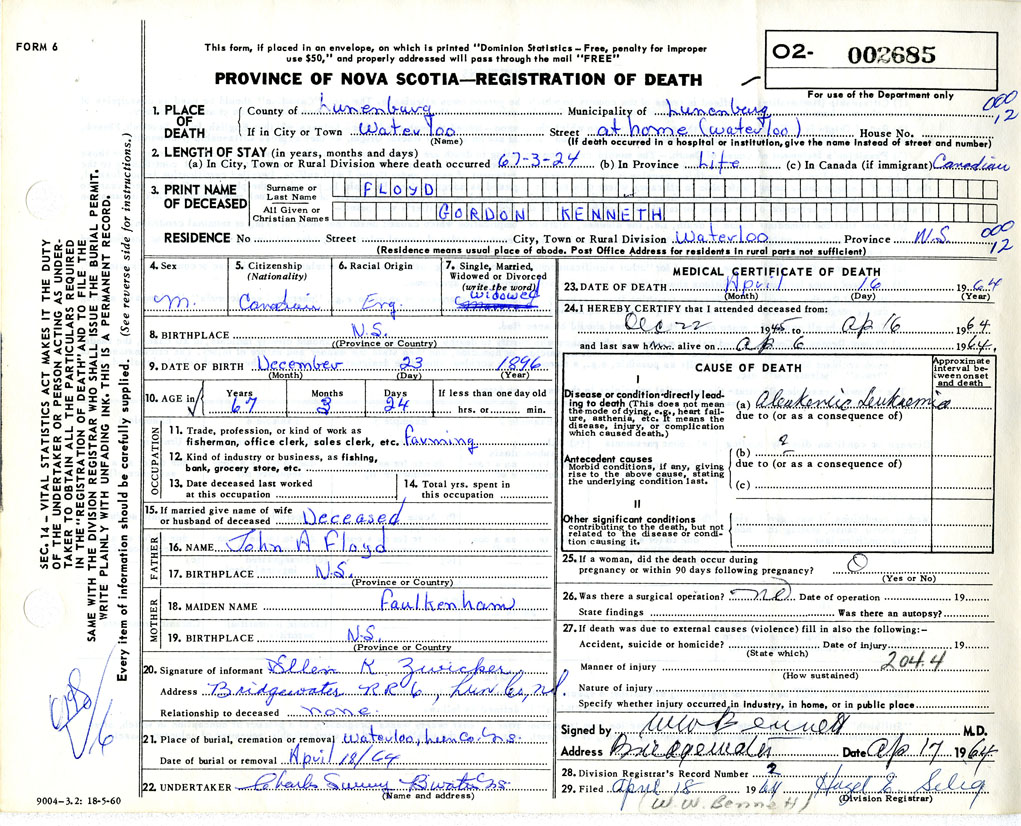 FORM 6
This form, if placed in an envelope, on which is printed "Dominion Statistics – Free, penalty for improper
use $50," and properly addressed will pass through the mail "FREE"
PROVINCE OF NOVA SCOTIA—REGISTRATION OF DEATH
O2- 002685
For use of the Department only
000
12
1. PLACE OF DEATH
County of Lunenburg Municipality of Lunenburg
If in City or Town Waterloo Street at home (waterloo) House No.
(Name) (If death occurred in a hospital or institution, give the name instead of street and number)
2. LENGTH OF STAY (in years, months and days)
(a) In City, Town or Rural Division where death occurred 67-3-24 (b) In Province Life (c) In Canada (if immigrant) Canadian
3. PRINT NAME OF DECEASED
Surname or Last Name FLOYD
All Given or Christian Names GORDON KENNETH
RESIDENCE No. Street City, Town or Rural Division Waterloo Province N.S.
000
12
(Residence means usual place of abode. Post Office Address for residents in rural parts not sufficient)
4. Sex M.
5. Citizenship (Nationality) Canadian
6. Racial Origin Eng.
7. Single, Married, Widowed or Divorced (write the word) Widowed
8. BIRTHPLACE N.S.
(Province or Country)
9. DATE OF BIRTH December 23 1896
(Month) (Day) (Year)
10. AGE in Years 67 Months 3 Days 24 If less than one day old hrs. or min.
OCCUPATION
11. Trade, profession or kind of work as
fisherman, office clerk, sales clerk, etc. farming
12. Kind of industry or business, as fishing,
bank, grocery store, etc.
13. Date deceased last worked
at this occupation
14. Total yrs. spent in
this occupation
15. If married give name of wife
or husband of deceased Deceased
FATHER
16. NAME John A Floyd
17. BIRTHPLACE N.S.
(Province or Country)
MOTHER
18. MAIDEN NAME Faulkenham
19. BIRTHPLACE N.S.
(Province or Country
20. Signature of informant K Zwicker
Address Bridgewater R R 6, Lun Co, N.S.
Relationship to deceased none.
21. Place of burial, cremation or removal Waterloo, Lun Co. N.S.
Date of burial or removal April 18/64
22. UNDERTAKER Charles Bwater NS
(Name and address)
9004-3.2: 18-5-60
MEDICAL CERTIFICATE OF DEATH
23. DATE OF DEATH April 16 1964
(Month) (Day) (Year)
24. I HEREBY CERTIFY that I attended deceased from:
to Ap 16 1964
and last saw him alive on ap 6 1964.
CAUSE OF DEATH
Approximate interval between onset and death
I
Disease or condition directly leading to death (This does not mean the mode of dying, e.g., heart failure, asthenia, etc. It means the disease, injury, or complication which caused death.)
(a) Aleukemic Leukaemia
due to (or as a consequence of)
?
(b)
Antecedent causes
Morbid conditions, if any, giving rise to the above cause, stating the underlying condition last.
due to (or as a consequence of)
(c)
II
Other significant conditions
contributing to the death, but not related to the disease or condition causing it.
25. If a woman, did the death occur during
pregnancy or within 90 days following pregnancy? O
(Yes or No)
26. Was there a surgical operation? no Date of operation 19
State findings Was there an autopsy?
27. If death was due to external causes (violence) fill in also the following:–
Accident, suicide or homicide? Date of injury 19
(State which)
Manner of injury 204.4
(How sustained)
Nature of injury
Specify whether injury occurred in industry, in home, or in public place
Signed by W W Bennett M.D.
Address Bridgewater Date Ap 17 1964
28. Division Registrar's Record Number 2
29. Filed April 18 1964 Hazel E Selig
(W. W. Bennett) (Division Registrar)
SEC. 14 – VITAL STATISTICS ACT MAKES IT THE DUTY
OF THE UNDERTAKER OR PERSON ACTING AS UNDERTAKER TO OBTAIN ALL THE PARTICULARS REQUIRED
IN THE "REGISTRATION OF DEATH" AND TO FILE THE
SAME WITH THE DIVISION REGISTRAR WHO SHALL ISSUE THE BURIAL PERMIT.
WRITE PLAINLY WITH UNFADING INK. THIS IS A PERMANENT RECORD.
Every item of information should be carefully supplied. (See reverse side for instructions.)